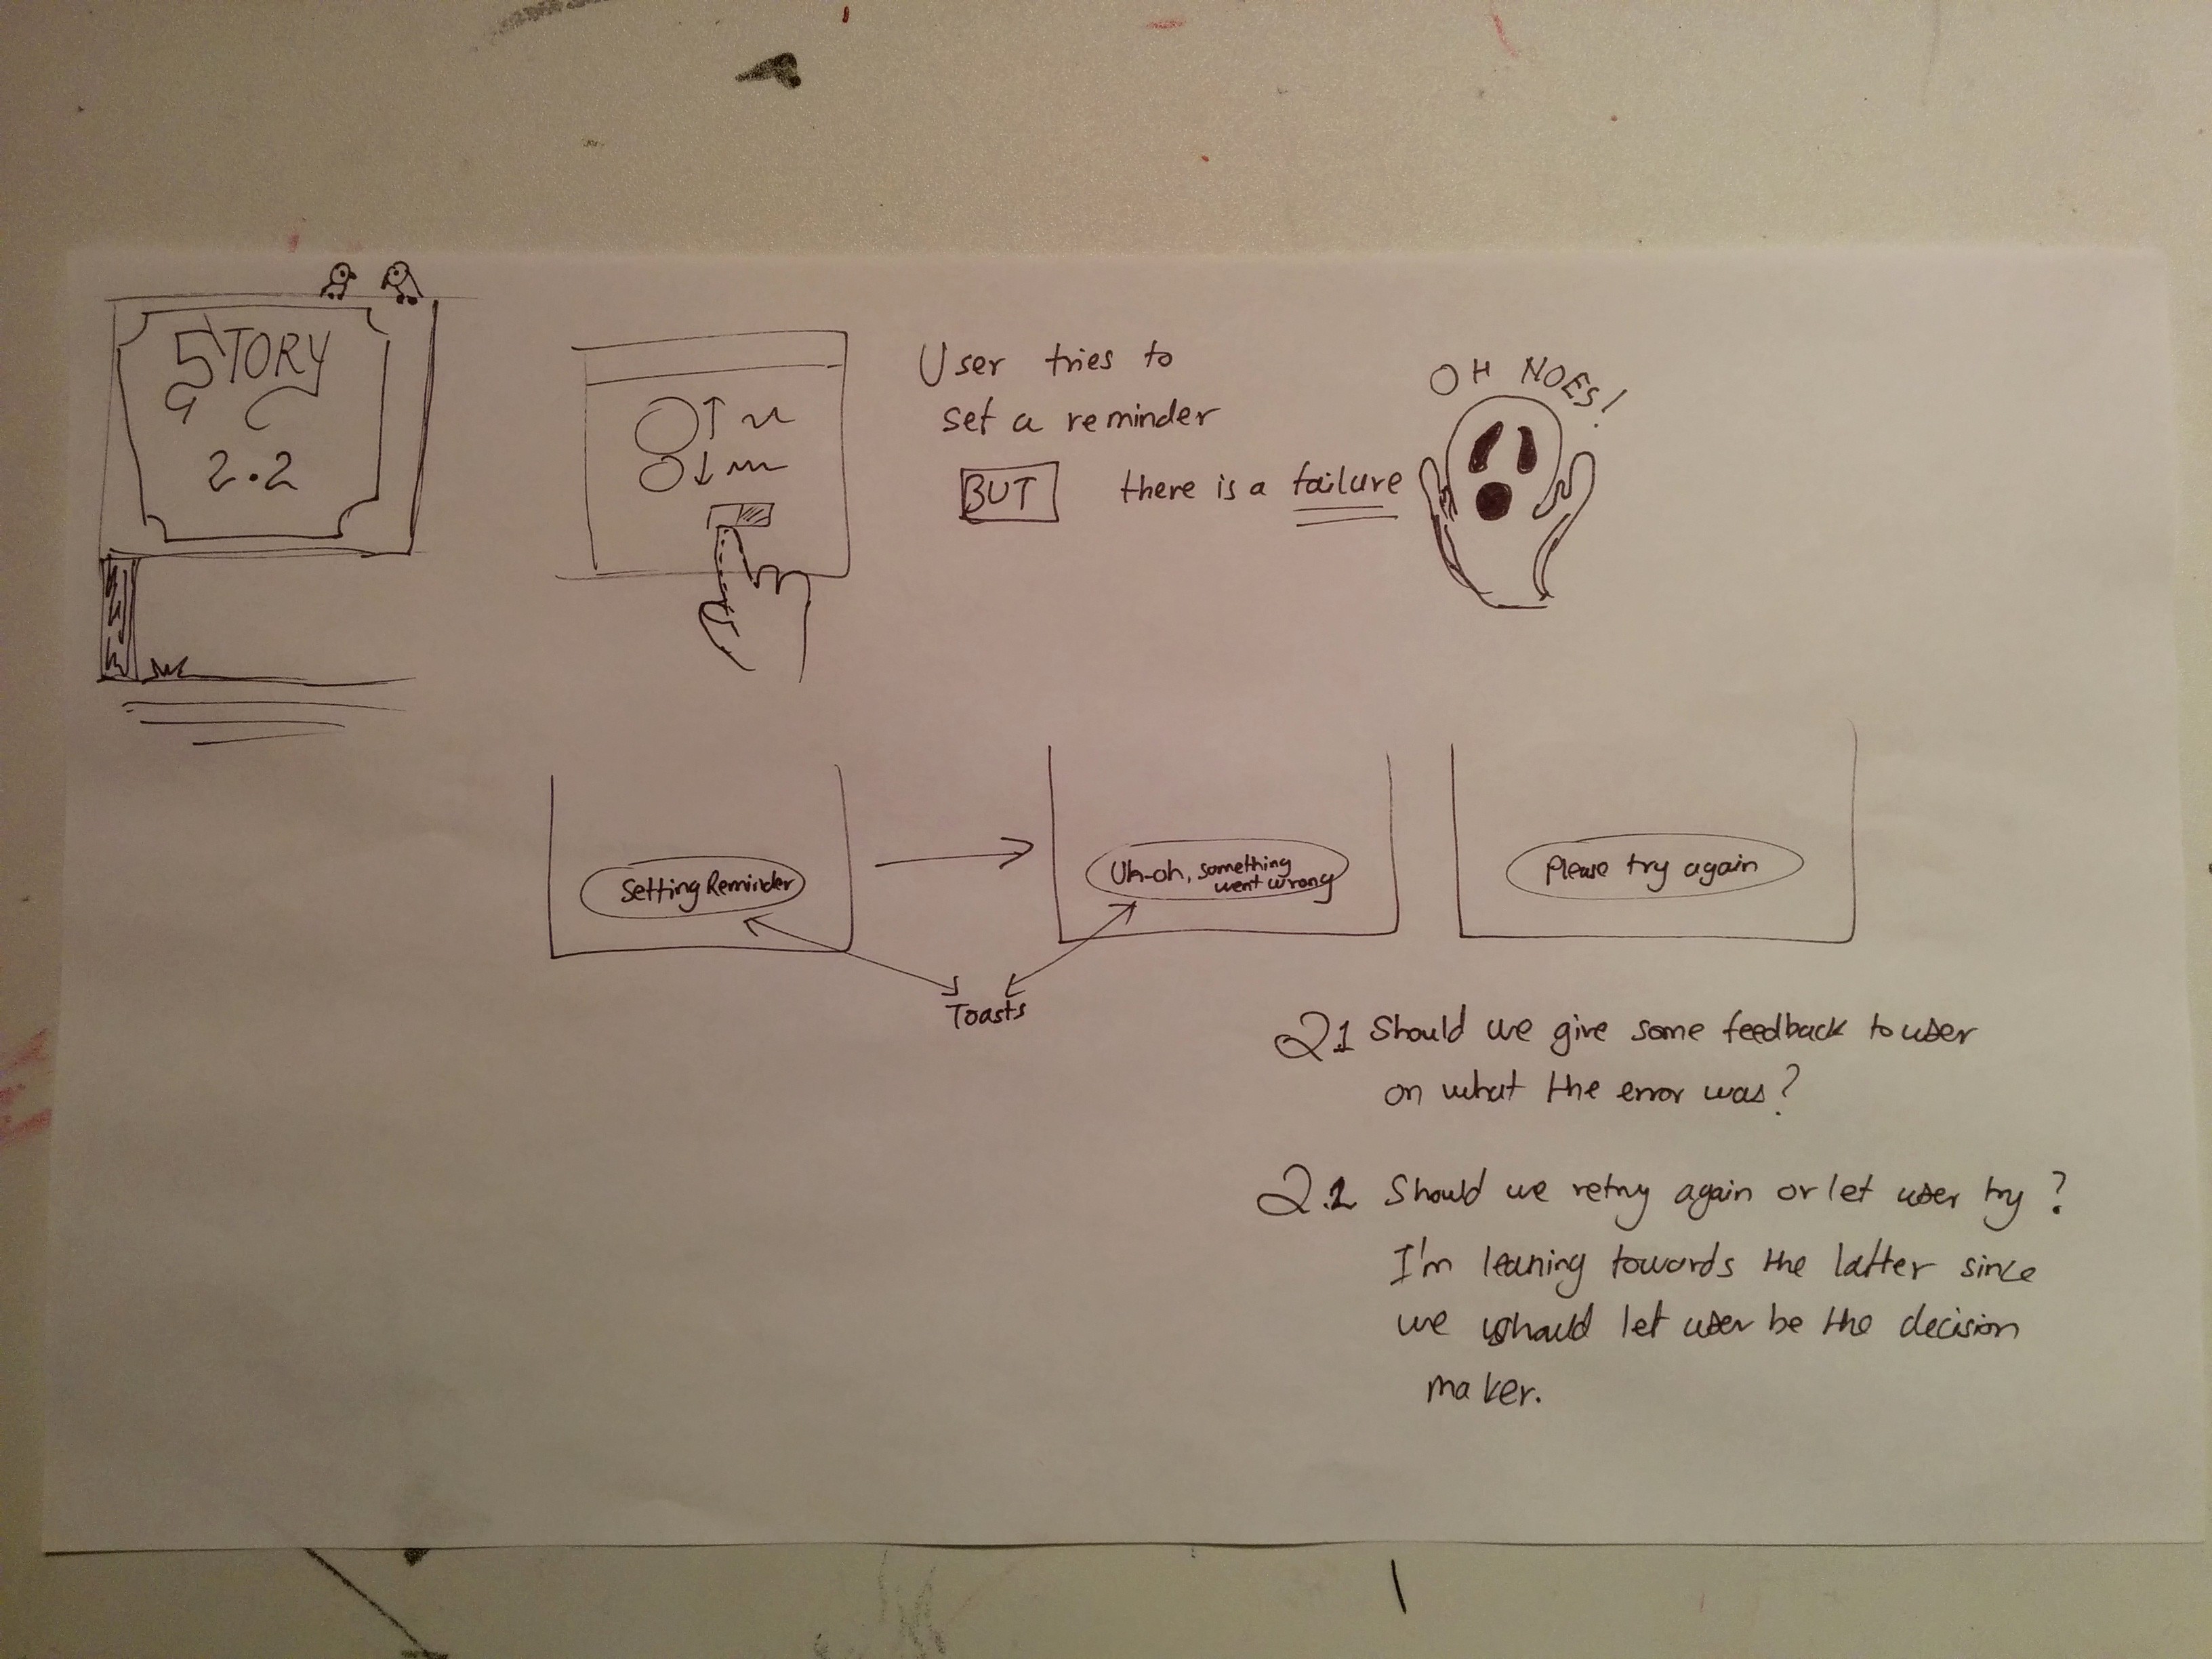 STORY
2.2
User tries to
set a reminder
BUT there is a failure
OH NOES!
Setting Reminder
Uh-oh, something
went wrong
Please try again
Toasts
Q1 Should we give some feedback to user
on what the error was?
Q.2 Should we retry again or let user try?
I'm leaning towards the latter since
we should let user be the decision
maker.